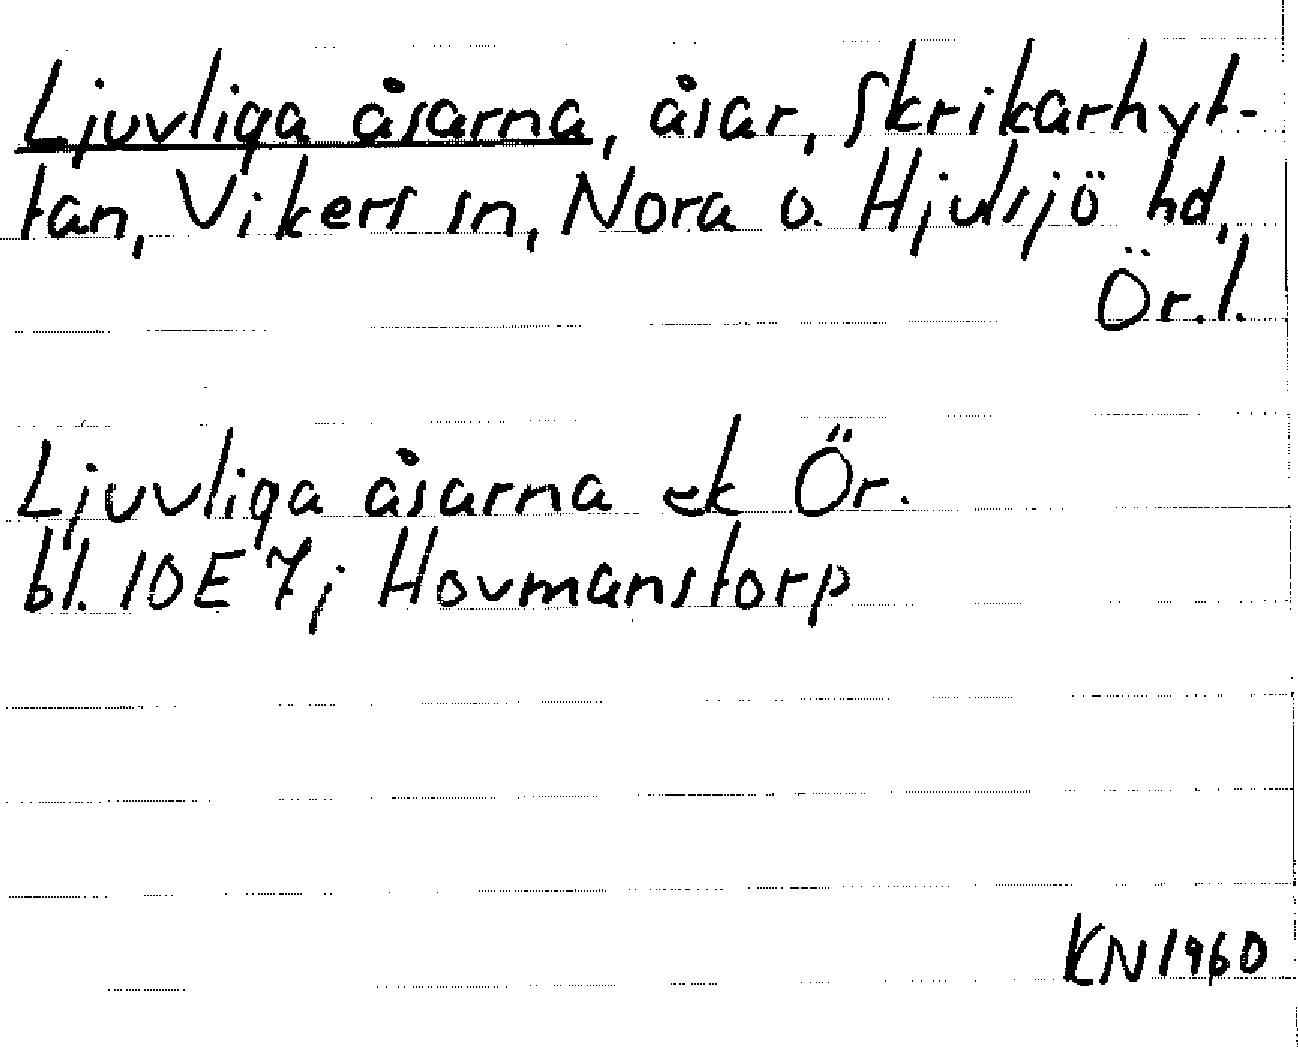 Ljuvliga åsarna, åsar, Skrikarhyt-
tan, Vikers sn, Nora o. Hjulsjö hd,
Ör.l.
Ljuvliga åsarna ek Ör.
bl. 10E 7j Hovmanstorp
KN1960